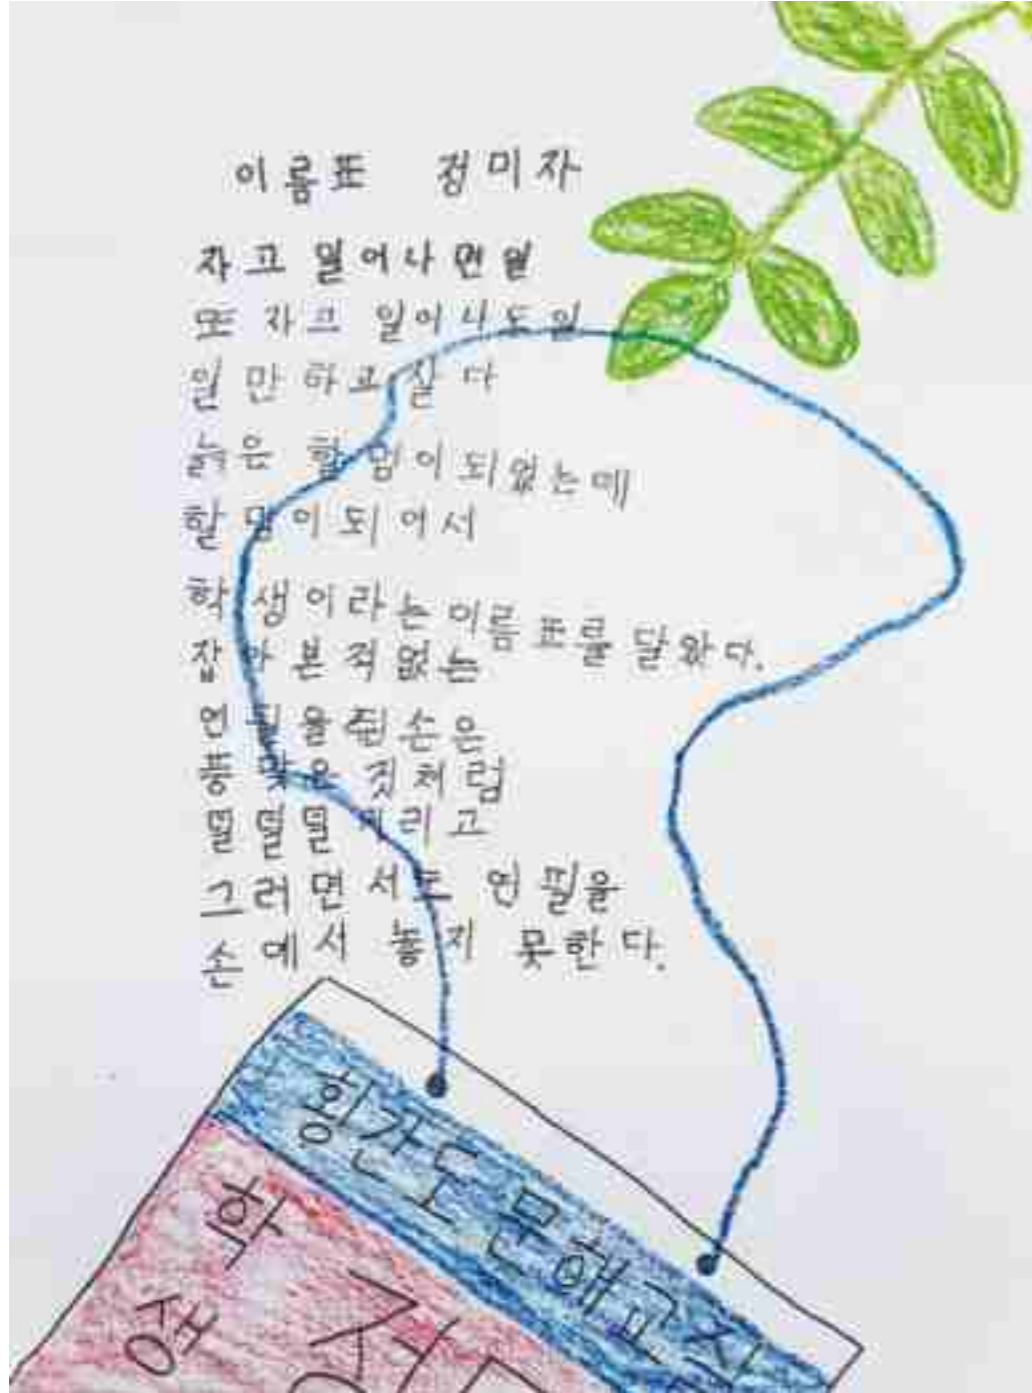 이름표 정미자
자고 일어나면일
또 자고 일어나도일
일만하고살다
늙은 할멈이되었는데
할멈이되어서
학생이라는이름표를달았다.
잡아본적없는
연필을쥔손은
풍맞은것처럼
덜덜덜떨리고
그러면서도 연필을
손에서 놓지 못한다.
횡간도문해교실
학생